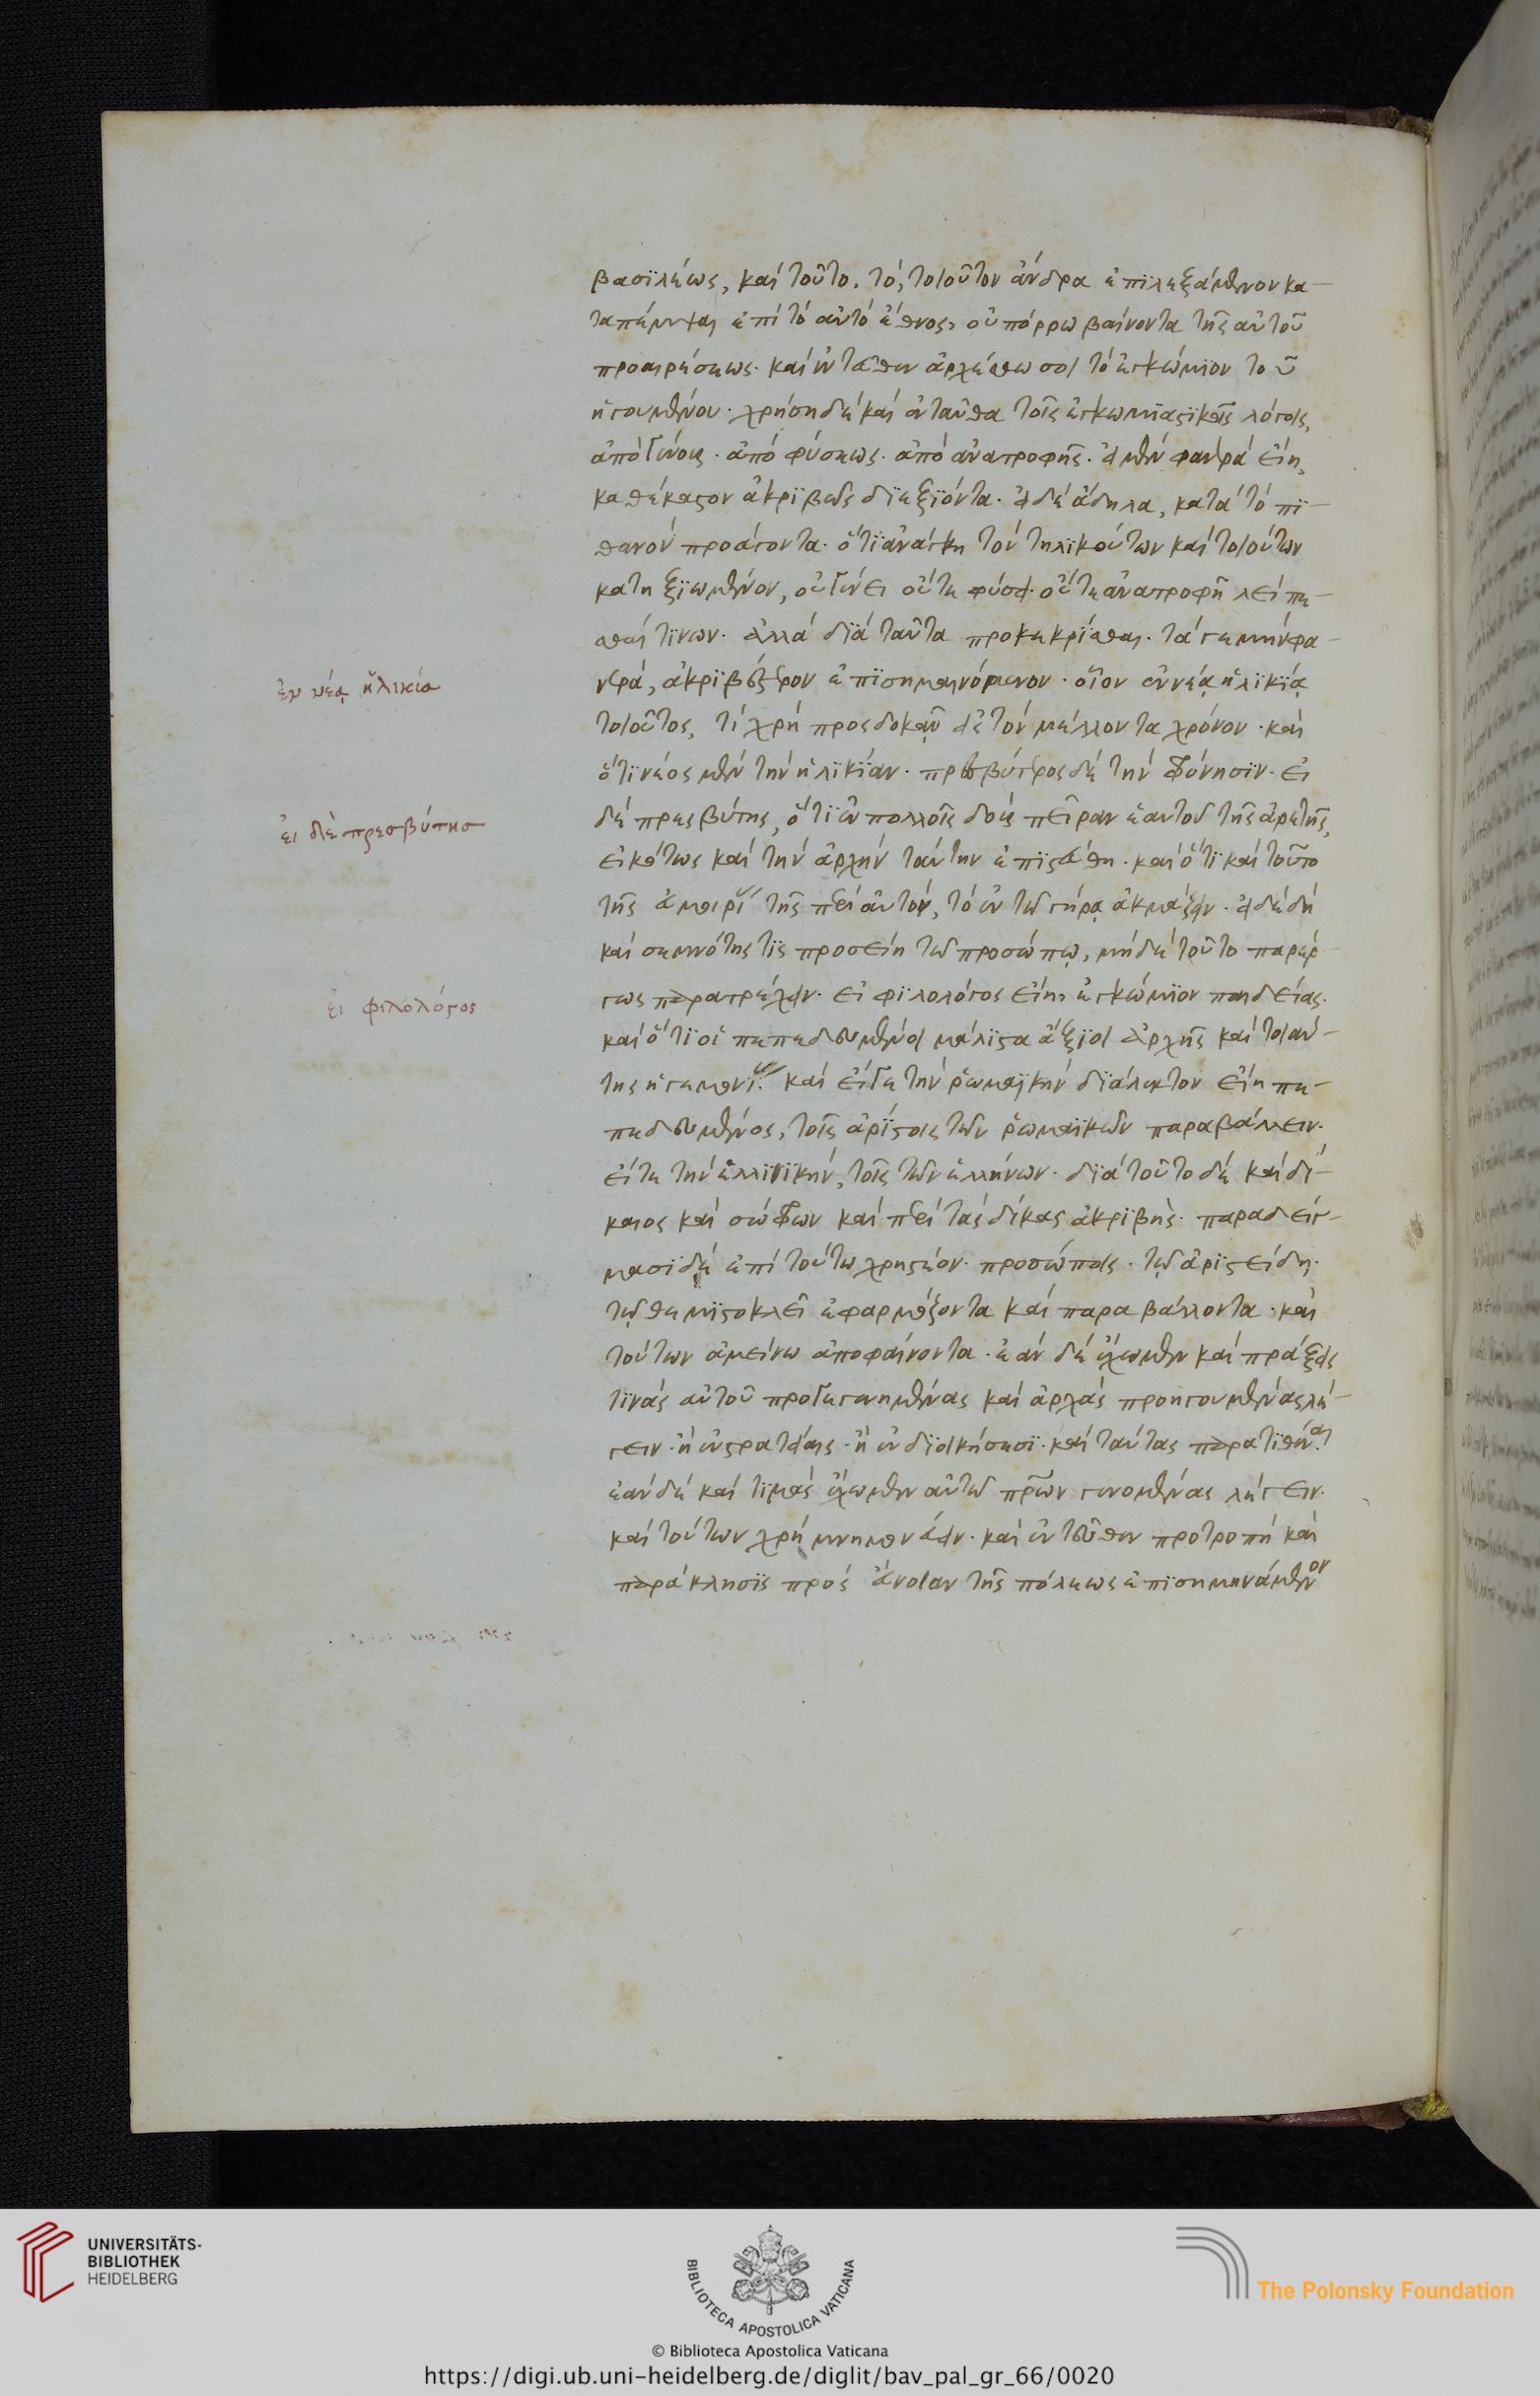 βασϊλέως, καὶ τοῦτο. τὸ, τοιοῦτον ἄνδρα ἐπιλεξάμενον κα-
ταπέμψαι ἐπὶ τὸ αὐτὸ ἔθνος, οὐ πόρρω βαίνοντα τῆς αὐτοῦ
προαιρέσεως. καὶ ἐνταῦθεν ἀρχέσθω σοι τὸ ἐγκώμιον τοῦ
ἡγουμένου. χρήση δὲ καὶ ἐνταῦθα τοῖς ἐγκωμιαστικοῖς λόγοις,
ἀπὸ γένους. ἀπὸ φύσεως. ἀπὸ ἀνατροφῆς. εἰ μὲν φανερὰ εἴη,
καθέκαστον ἀκριβῶς διεξιόντα. εἰ δὲ ἄδηλα, κατὰ τὸ πι-
θανὸν προάγοντα. ὅτι ἀνάγκη τὸν τηλικούτων καὶ τοιούτων
κατηξιωμένον, οὐ γένει οὔτε φύσει. οὔτε ἀνατροφῇ λείπε-
σθαί τινων. ἀλλὰ διὰ ταῦτα προκεκρίσθαι. τά γε μὴν φα-
νερά, ἀκριβέστερον ἐπισημαινόμενον. οἷον ἐν νέᾳ ἡλικίᾳ
τοιοῦτος, τί χρὴ προσδοκᾷν εἰς τὸν μέλλοντα χρόνον. καὶ
ὅτι νέος μὲν τὴν ἡλικίαν. πρεσβύτερος δὲ τὴν φρόνησιν. εἰ
δὲ πρεσβύτης, ὅτι ἐν πολλοῖς δοὺς πεῖραν ἑαυτοῦ τῆς ἀρετῆς,
εἰκότως καὶ τὴν ἀρχὴν ταύτην ἐπιστεύθη. καὶ ὅτι καὶ τοῦτο
τῆς ἐμπειρίας τῆς περὶ αὐτὸν, τὸ ἐν τῶ γήρᾳ ἀκμάζειν. εἰ δὲ δὴ
καὶ σεμνότης τις προσείη τῶ προσώπῳ, μηδὲ τοῦτο παρέρ-
γως παρατρέχειν. εἰ φιλολόγος εἴη, ἐγκώμιον παιδείας.
καὶ ὅτι οἱ πεπαιδευμένοι μάλιστα ἄξιοι ἀρχῆς καὶ τοιαύ-
της ἡγεμονίας. καὶ εἴτε τὴν ῥωμαϊκὴν διάλεκτον εἴη πε-
παιδευμένος, τοῖς ἀρίστοις τῶν ῥωμαϊκῶν παραβάλλειν.
εἴτε τὴν ἑλληνικὴν, τοῖς τῶν ἑλλήνων. διὰ τοῦτο δὲ καὶ δί-
καιος καὶ σώφρων καὶ περὶ τὰς δίκας ἀκριβὴς. παραδείγ-
μασι δὲ ἐπὶ τούτω χρηστέον. προσώποις. τῷ ἀριστείδη.
τῷ θεμιστοκλεῖ ἐφαρμόζοντα καὶ παραβάλλοντα. καὶ
τούτων ἀμείνω ἀποφαίνοντα. ἐὰν δὲ ἔχωμεν καὶ πράξεις
τινὰς αὐτοῦ προγεγενημένας καὶ ἀρχὰς προηγουμένας λέ-
γειν. ἢ ἐν στρατείαις. ἢ ἐν διοικήσεσι. καὶ ταύτας παρατιθέναι
ἐὰν δὲ καὶ τιμὰς ἔχωμεν αὐτῶ πρῶτον γενομένας λέγειν.
καὶ τούτων χρὴ μνημονεύειν. καὶ ἐντεῦθεν προτροπὴ καὶ
παράκλησις πρὸς εὔνοιαν τῆς πόλεως ἐπισημηνάμενον
ἐν νέᾳ ἡλικία
εἰ δὲ πρεσβύτησ
εἰ φιλολόγος
UNIVERSITÄTS-
BIBLIOTHEK
HEIDELBERG
BIBLIOTECA APOSTOLICA VATICANA
The Polonsky Foundation
© Biblioteca Apostolica Vaticana
https://digi.ub.uni-heidelberg.de/diglit/bav_pal_gr_66/0020